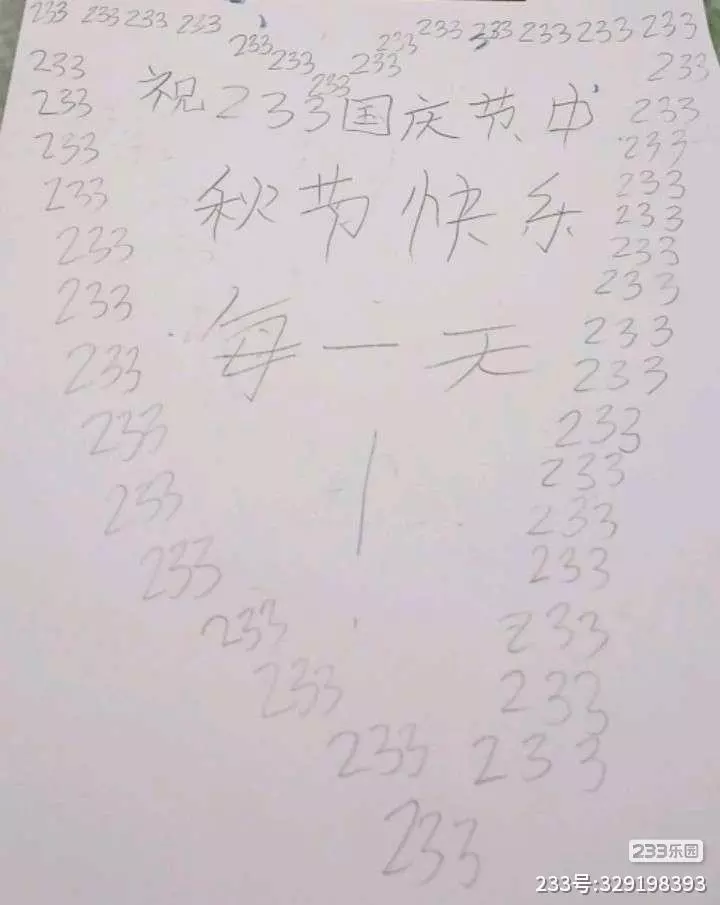 233 233 233 233 233 233 233 233 233
233 233
233 233 233 233
233
233 祝233国庆节中 233
233 233
233 233
秋节快乐 233
233 233
233 233
233 每一天 233
233 233
233 233
233
233 233
233 233
233 233
233 233
233 233
233
233乐园
233号:329198393